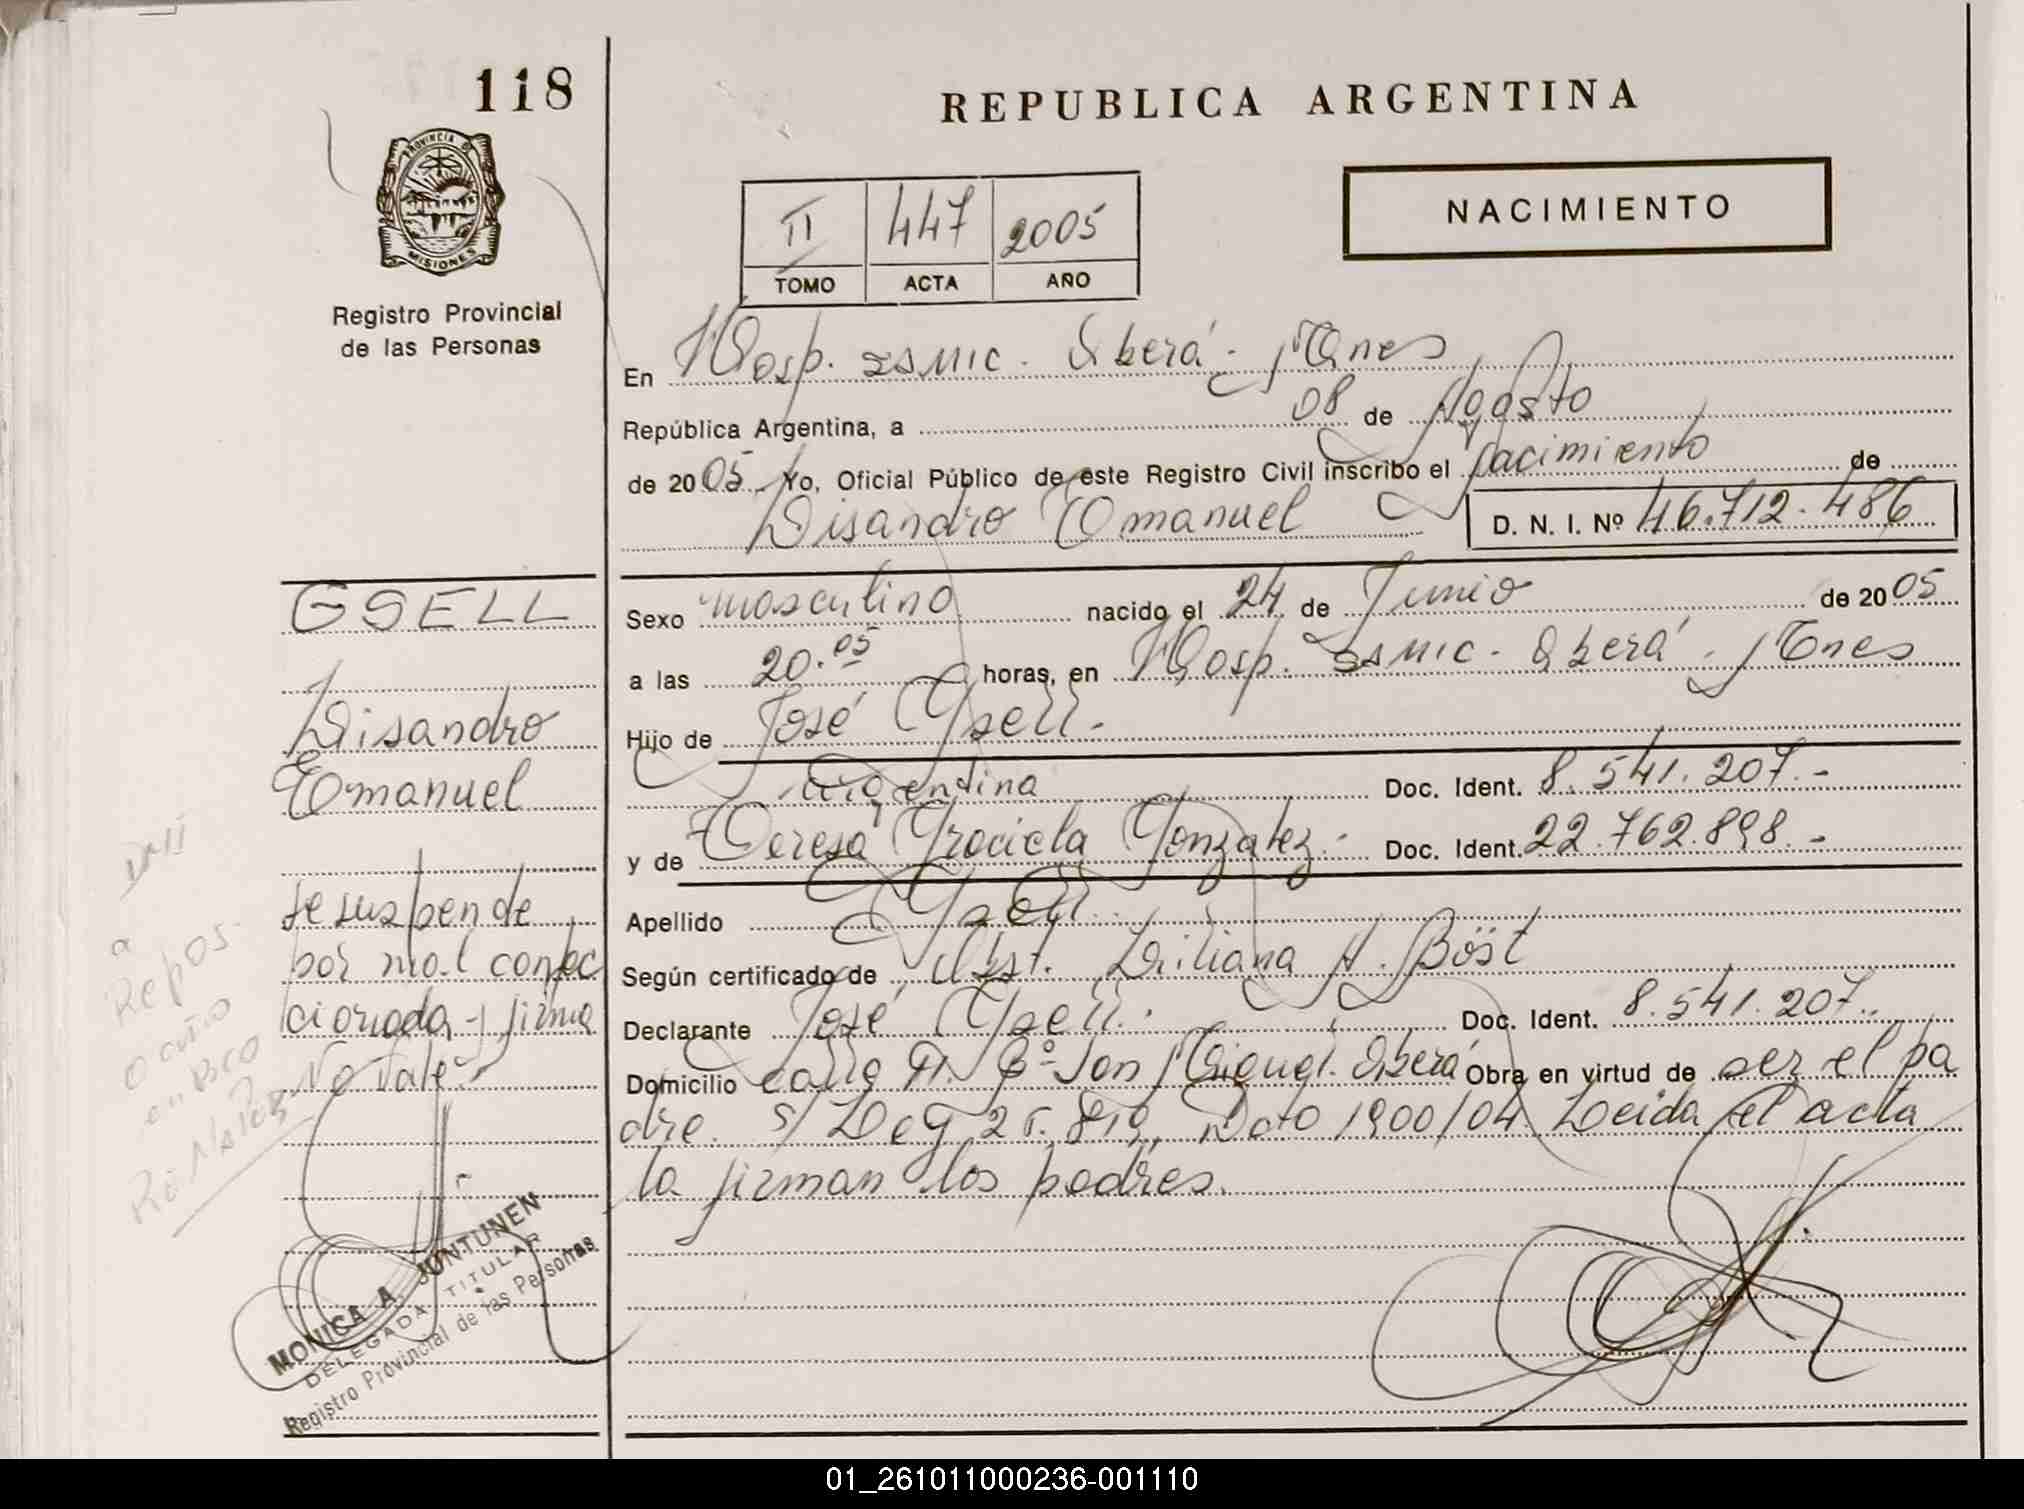 118
REPUBLICA ARGENTINA
PROVINCIA DE
MISIONES
Registro Provincial
de las Personas
II 447 2005
TOMO ACTA AÑO
NACIMIENTO
En Hosp. Samic. Oberá. Mnes
República Argentina, a 08 de Agosto
de 2005 Yo, Oficial Público de este Registro Civil inscribo el nacimiento de
Lisandro Emanuel D. N. I. Nº 46.712.486
Sexo masculino nacido el 24 de Junio de 2005
a las 20.05 horas, en Hosp. Samic. Oberá. Mnes
Hijo de José Gsell.-
argentina Doc. Ident. 8.541.207.-
y de Teresa Graciela Gonzalez.- Doc. Ident. 22.762.898.-
Apellido Gsell.
Según certificado de Obst. Liliana A. Böst
Declarante José Gsell. Doc. Ident. 8.541.207.
Domicilio Bº San Miguel. Oberá Obra en virtud de ser el pa
dre. s/ Ley 25.819, Dcto 1900/04. Leída el acta
la firman los padres.
GSELL
Lisandro
Emanuel
Se suspende
por mal confec
cionada y firma
No vale.
MONICA A. JUNTUNEN
DELEGADA TITULAR
Registro Provincial de las Personas
a
Repos
01_261011000236-001110